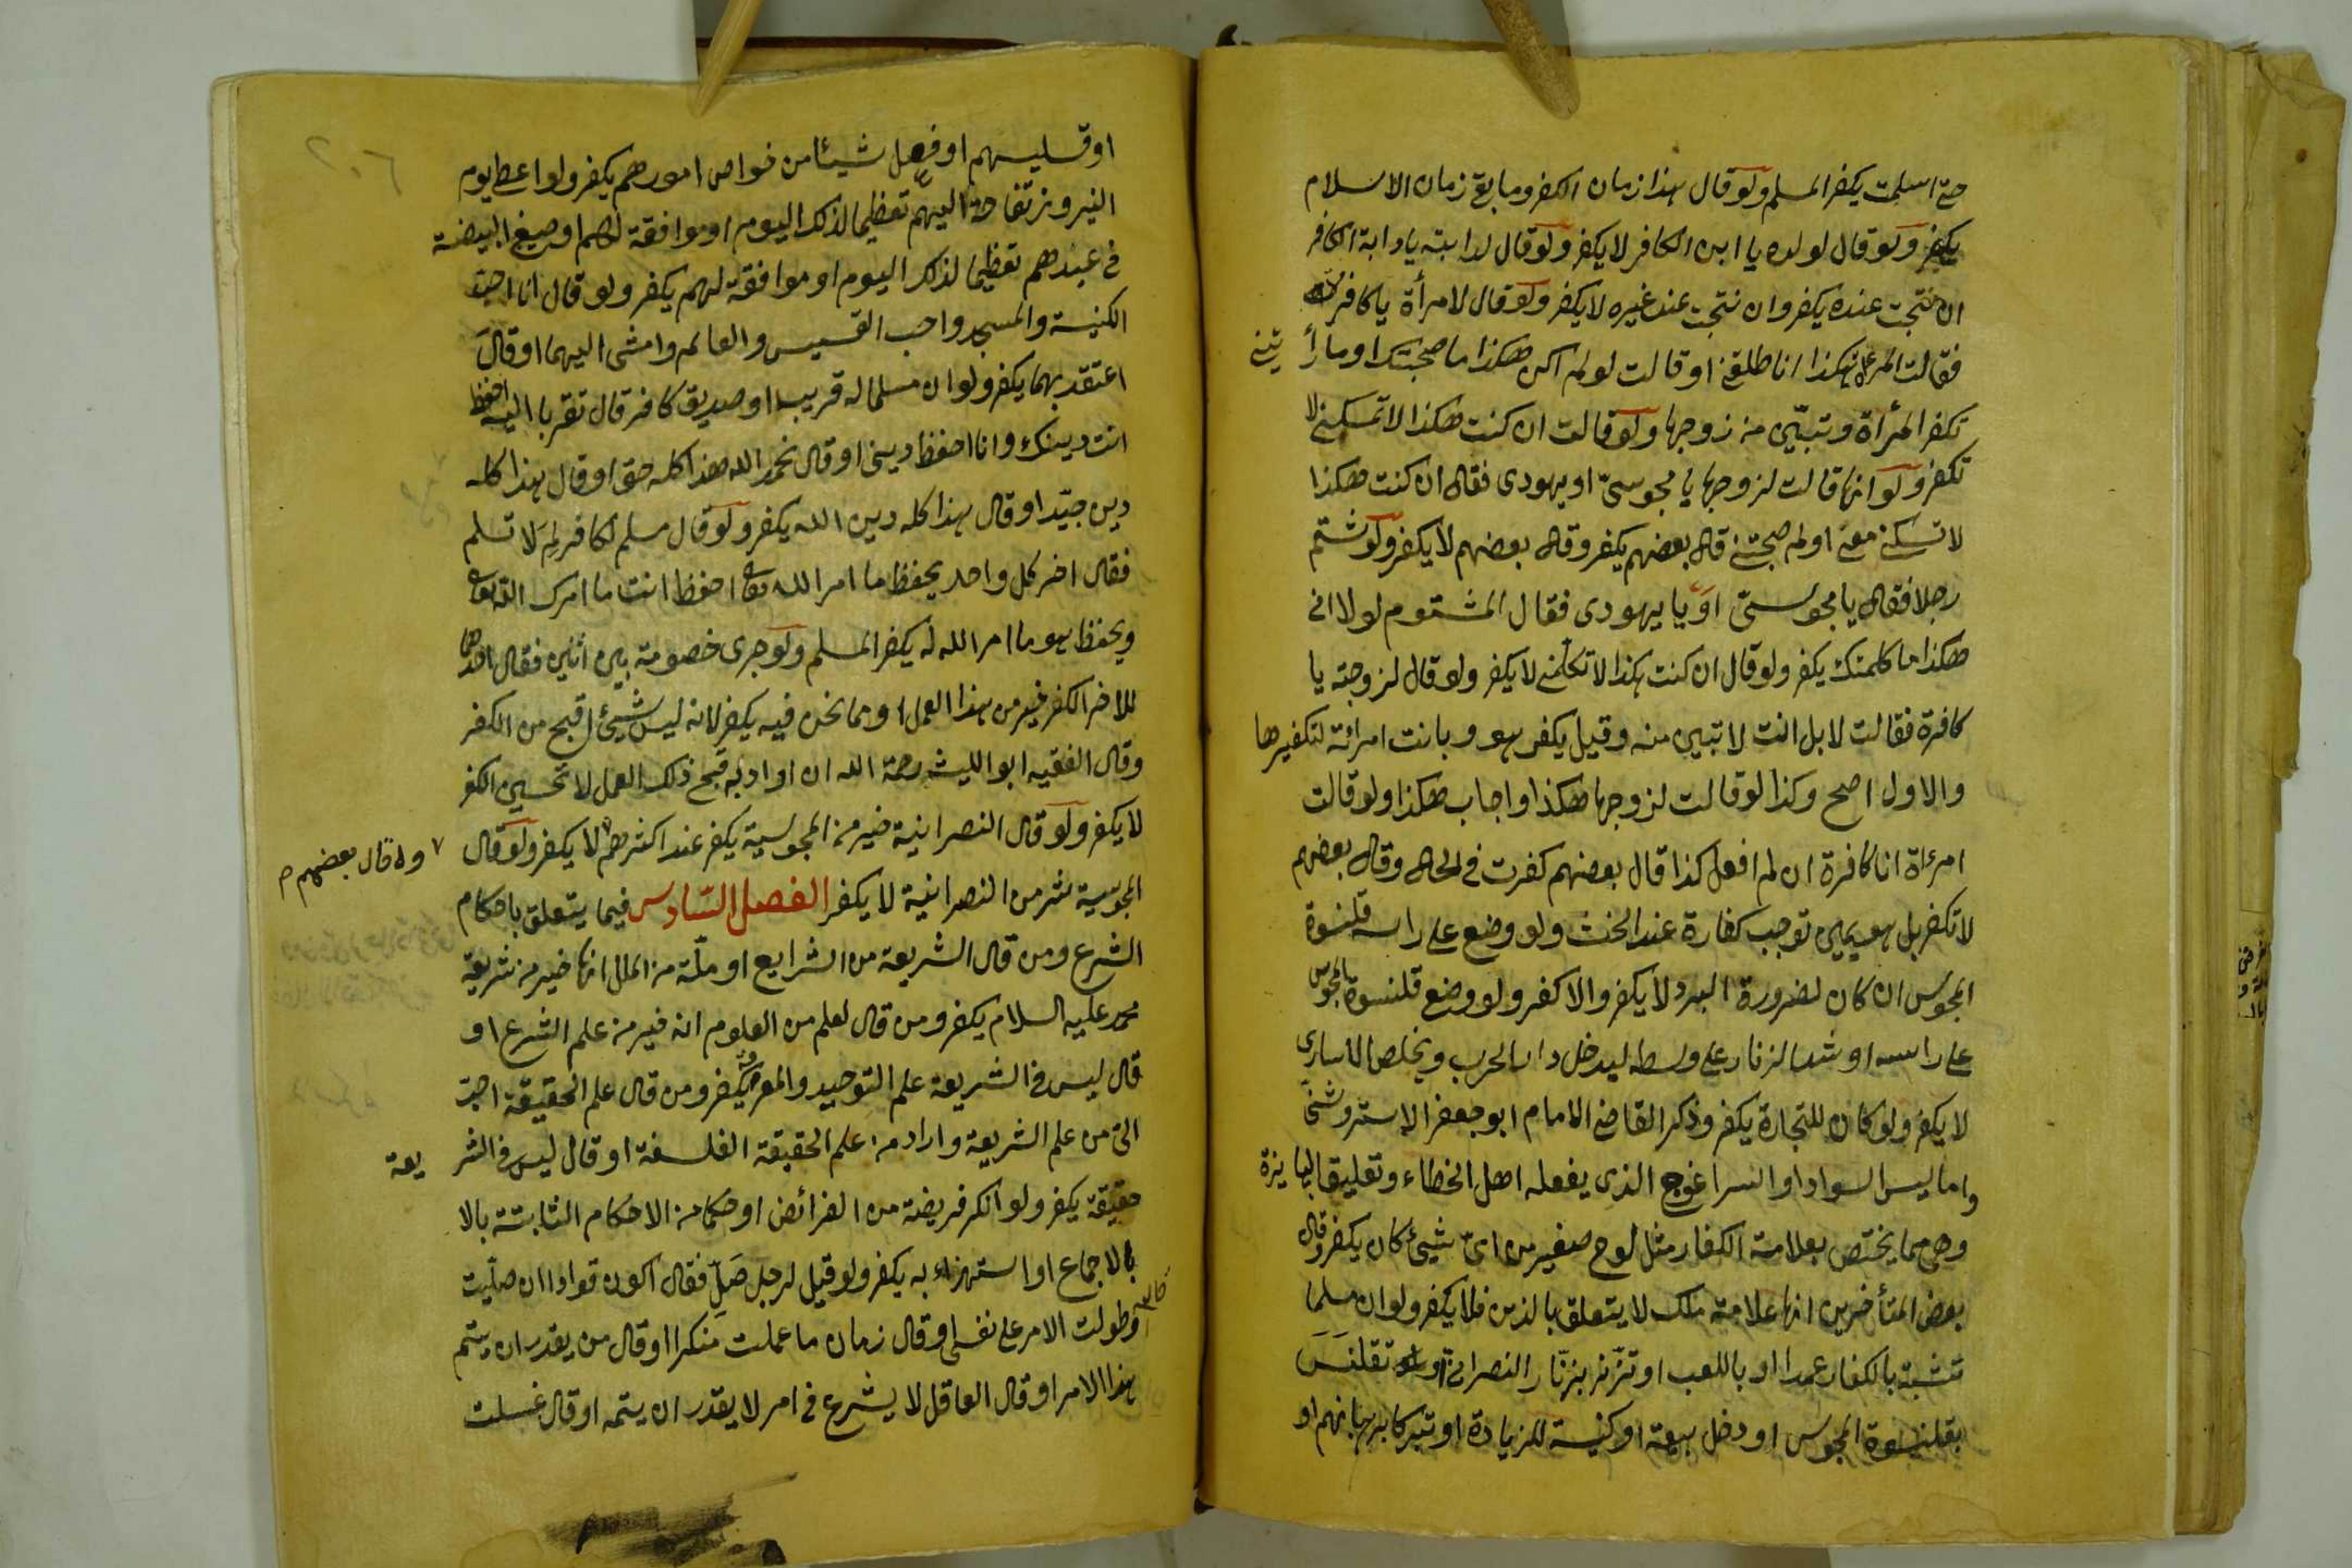 حتى اسلمت يكفر المسلم ولو قال هذا زمان الكفر وما بقى زمان الاسلام
يكفر ولو قال لولده يا ابن الكافر لا يكفر ولو قال لدابته يا دابة الكافر
ان نتجت عنده يكفر وان نتجت عند غيره لا يكفر ولو قال لامرأة يا كافرة
فقالت المرأة هكذا انا طلقنى او قالت لو لم اكن هكذا ما صحبتك او ما رأيتنى
تكفر المرأة وتبين من زوجها ولو قالت ان كنت هكذا لا تمسكنى لا
تكفر ولو انها قالت لزوجها يا مجوسىّ او يهودى فقال ان كنت هكذا
لا تسكنى معى او لم صحبتنى قال بعضهم يكفر وقال بعضهم لا يكفر ولو شتم
رجلا فقال يا مجوسىّ او يا يهودى فقال المشتوم لولا انى
هكذا ما كلمتك يكفر ولو قال ان كنت هكذا لا تكلّمنى لا يكفر ولو قال لزوجته يا
كافرة فقالت لا بل انت لا تبين منه وقيل يكفر هو وبانت امرائة لتكفيرها
والاول اصح وكذا لو قالت لزوجها هكذا واجاب هكذا ولو قالت
امرءاة انا كافرة ان لم افعل كذا قال بعضهم كفرت فى الحال وقال بعضهم
لا تكفر بل هو يمين توجب كفارة عند الحنث ولو وضع على راسه قلنسوة
المجوس ان كان لضرورة البرد لا يكفر والا كفر ولو وضع قلنسوة المجوس
على راسه او شد الزنار على وسطه ليدخل دار الحرب ويخلص الاسارى
لا يكفر ولو كان للتجارة يكفر وذكر القاضى الامام ابو جعفر الاستروشنى
واما لبس السواد او السراغوج الذى يفعله اهل الخطاء وتعليق البايزة
وهى مما يختص بعلامة الكفار مثل لوح صغير من اىّ شيئ كان يكفر وقال
بعض المتأخرين انها علامة ملك لا يتعلق بالدين فلا يكفر ولو ان مسلما
تشبّه بالكفار عمدا او باللعب او تزنّر بزنّار النصرانى او تقلنَسَ
بقلنسوة المجوس او دخل بيعة او كنيسة للزيادة او تبركا برهبانهم او
او قسليسهم او فعل شيئا من خواص امورهم يكفر ولو اعطى يوم
النيروز تفاحة اليهم تعظيما لذلك اليوم او موافقة لهم او صبغ البيضة
فى عيدهم تعظيما لذلك اليوم او موافقة لهم يكفر ولو قال انا احبّ
الكنيسة والمسجد واحب القسيس والعالم وامشى اليهما او قال
اعتقد بهما يكفر ولو ان مسلما له قريب او صديق كافر قال تقربا اليه احفظ
انت دينك وانا احفظ دينى او قال نحمد الله هذا كله حق او قال هذا كله
دين جيّد او قال هذا كله دين الله يكفر ولو قال مسلم لكافر لِمَ لا تسلم
فقال اخر كل واحد يحفظ ما امر الله تعالى احفظ انت ما امرك الله تعالى
ويحفظ هو ما امر الله له يكفر المسلم ولو جرى خصومة بين اثنين فقال احدهما
للاخر الكفر خير من هذا العمل او مما نحن فيه يكفر لانه ليس شيئ اقبح من الكفر
وقال الفقيه ابو الليث رحمة الله ان اراد به قبح ذلك العمل لا تحسين الكفر
لا يكفر ولو قال النصرانية خير من المجوسية يكفر عند اكثرهم لا يكفر ولو قال
وقال بعضهم
المجوسية شر من النصرانية لا يكفر الفصل السّادس فيما يتعلق باحكام
الشرع ومن قال الشريعة من الشرايع او ملّة من الملل انها خير من شريعة
محمد عليه السلام يكفر ومن قال لعلم من العلوم انه خير من علم الشرع او
قال ليس فى الشريعة علم التوحيد والمعرفة يكفر ومن قال علم الحقيقة احبّ
الىّ من علم الشريعة واراد من علم الحقيقة الفلسفة او قال ليس فى الشريعة
حقيقة يكفر ولو انكر فريضة من الفرائض او حكما من الاحكام الثابتة بالا
بالاجماع او استهزاء به يكفر ولو قيل لرجل صَلِّ فقال اكون قوادا ان صلّيت
وطولت الامر على نفسى او قال زمان ما عملت منكرا او قال من يقدر ان يتم
هذا الامر او قال العاقل لا يشرع فى امر لا يقدر ان يتمه او قال غسلت